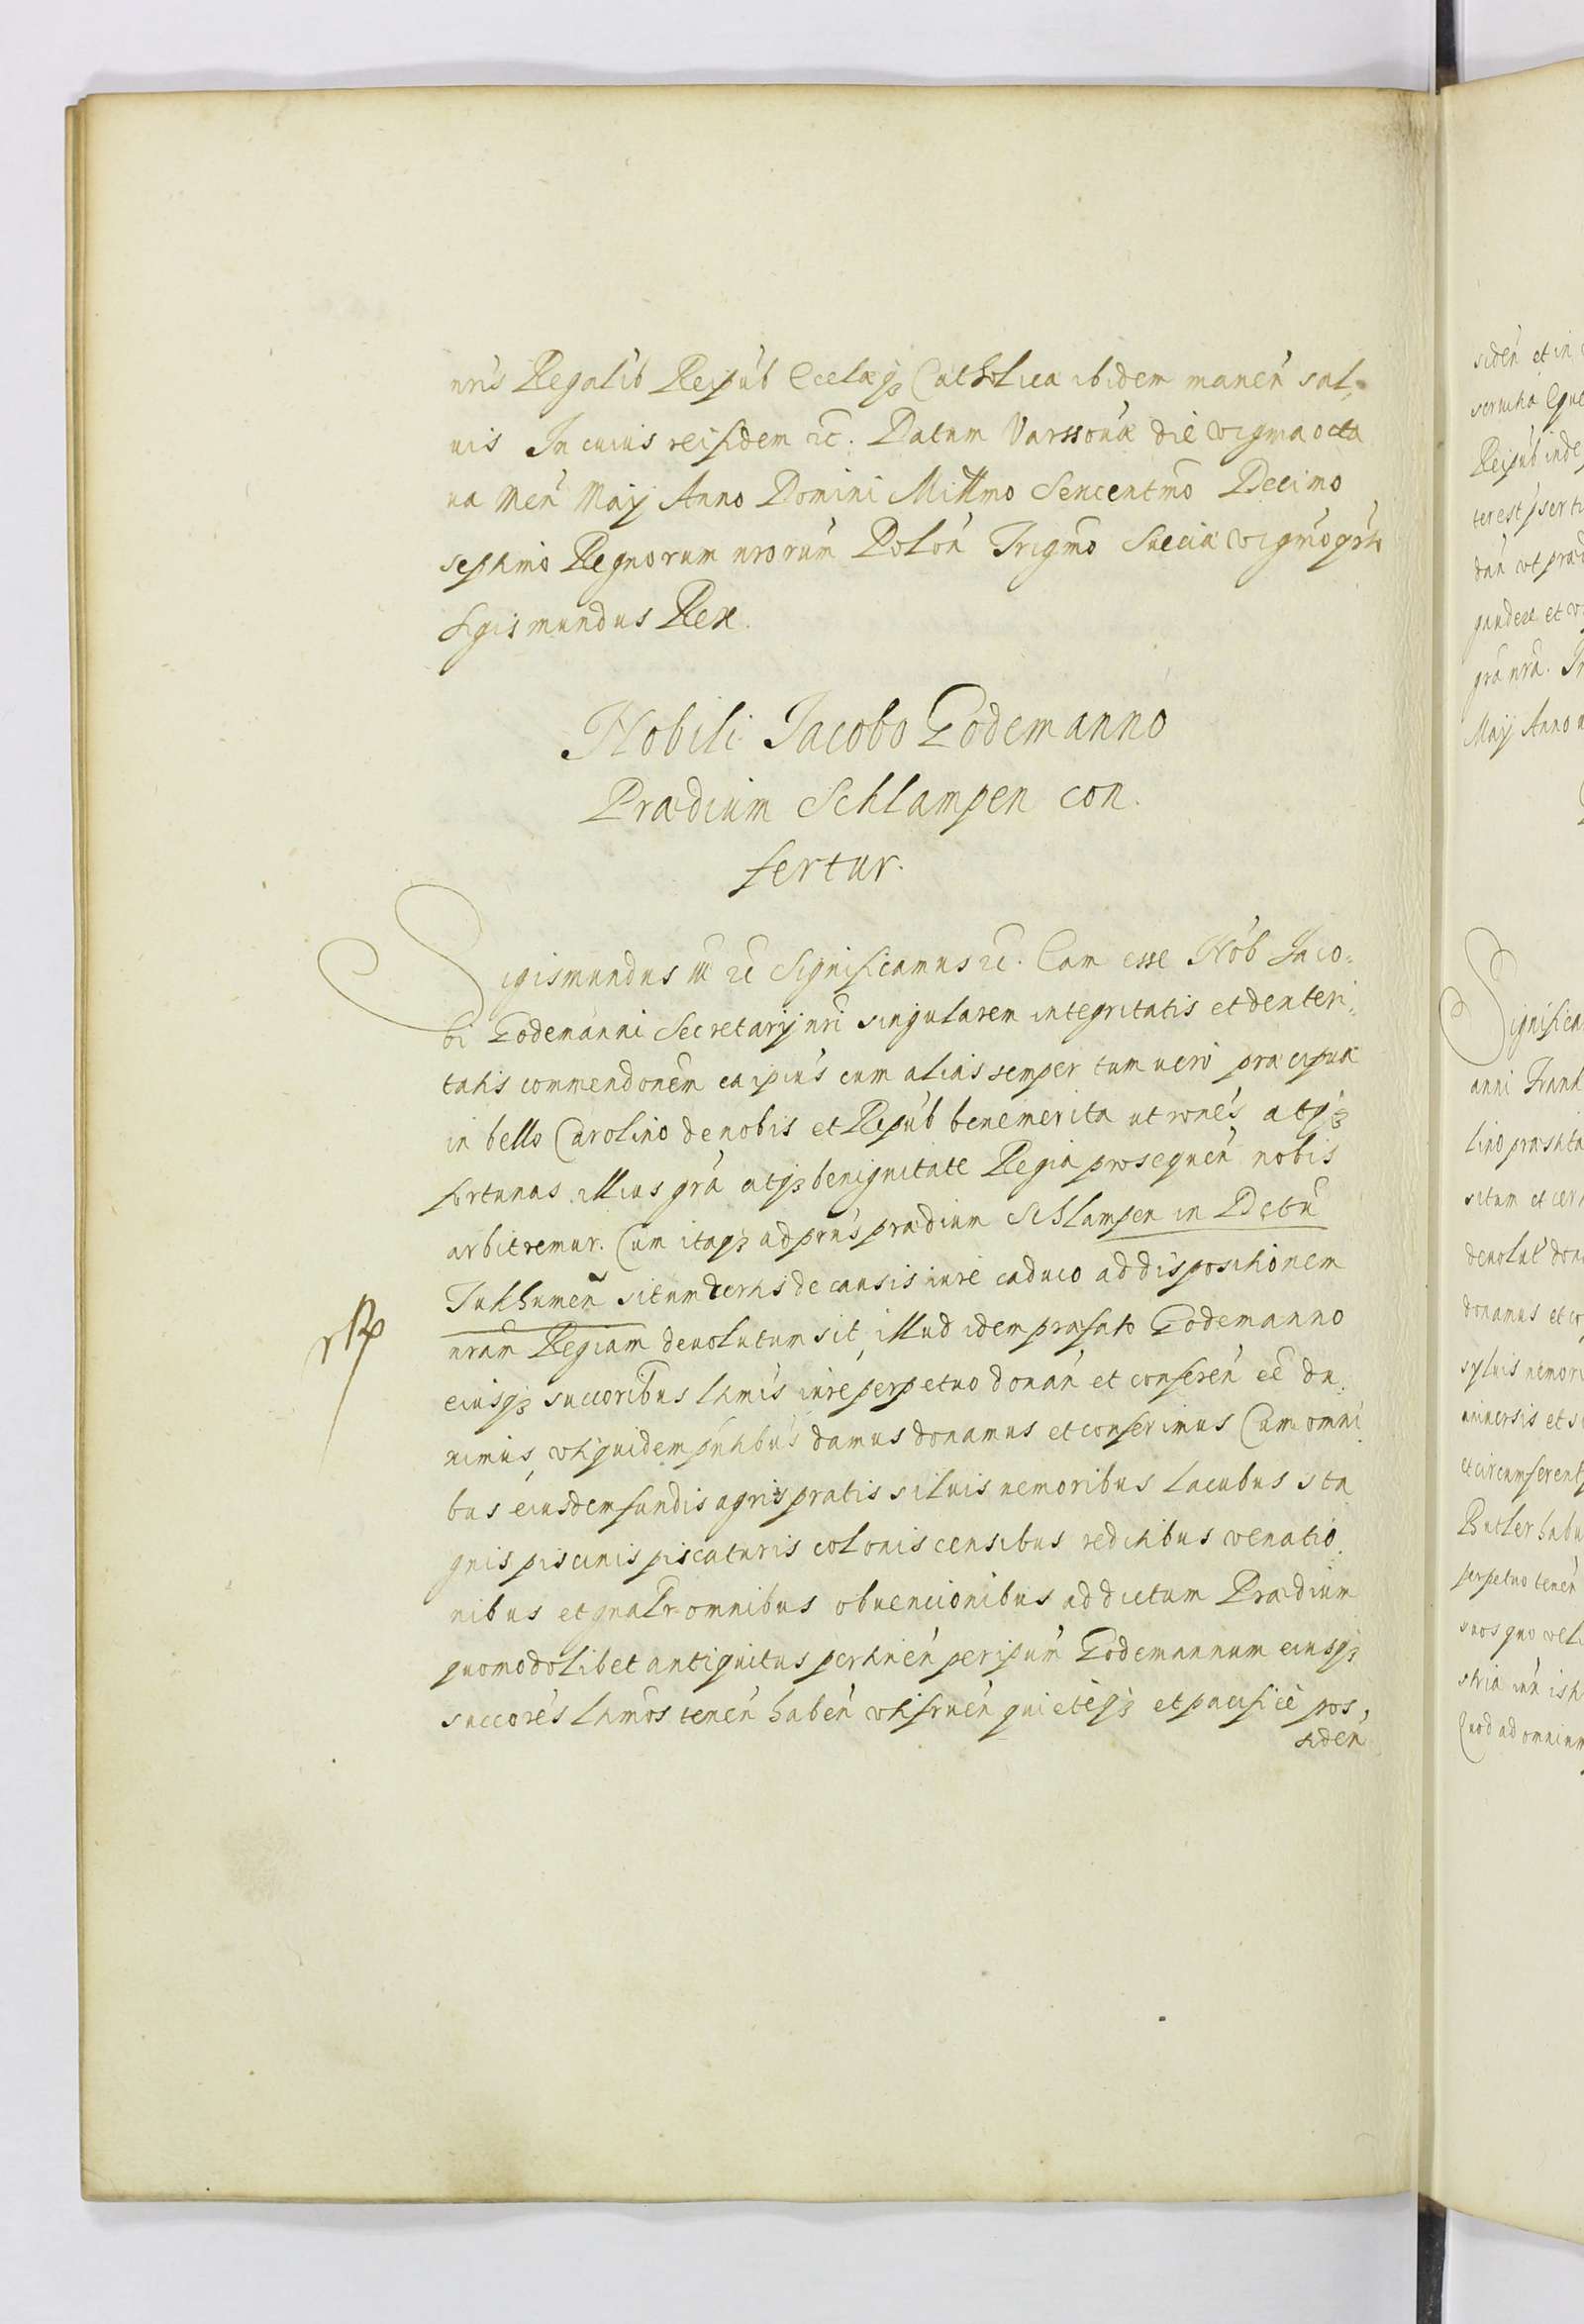 nris Regalib Reipub Eccłaeqꝫ Catholica ibidem manen̄ sal-
uis In cuius rei fidem ꝛc̄. Datum Varssouiæ die vigma octa
ua Men̄ Maij Anno Domini Millmo Sexcentmo Decimo
septimo Regnorum nrorum Polon̄ Trigmo Sueciæ vigmoqrto
Sigismundus Rex.
Nobili Jacobo Godemanno
Prædium Schlampen con.
fertur.
Sigismundus III ꝛc̄ Significamus ꝛc̄. Eam esse Nob Jaco=
bi Godemanni Secretarij nri singularem integritatis et dexteri.
tatis commendonem ea ipius cum alias semper tum uero præcipuæ
in bello Carolino de nobis et Repub benemerita ut rones atqꝫ
fortunas illius gra atqꝫ benignitate Regia prosequen̄ nobis
arbitremur. Cum itaqꝫ ad prns prædium Schlampen in Dctu
Tukhumen̄ situm certis de causis iure caduco ad dispositionem
nram Regiam deuolutum sit, illud idem præfato Godemanno
eiusqꝫ succoribus ltmis iure perpetuo donan̄ et conferen̄ ee du.
ximus, vti quidem pntibus damus donamus et conferimus Cum omni.
bus eiusdem fundis agris pratis siluis nemoribus lacubus sta
gnis piscinis piscaturis colonis censibus reditibus venatio.
nibus et gnalr omnibus obuencionibus ad dictum Prædium
quomodolibet antiquitus pertinen̄ per ipum Godemannum eiusqꝫ
succores ltmos tenen̄ haben̄ vtifruen̄ quieteqꝫ et pacifice pos,
siden̄
siden̄ et in
Reipub inde
terest
dan̄ vt præd
gaudere et
gra nra. In
Maij Anno
Significa
anni Frank
lino præstita
situm et
deuolut dona
donamus et co
syluis nemori
uniuersis et
et circumferent
Butler habu
perpetuo tenen̄
suos quo
Quod ad omnium